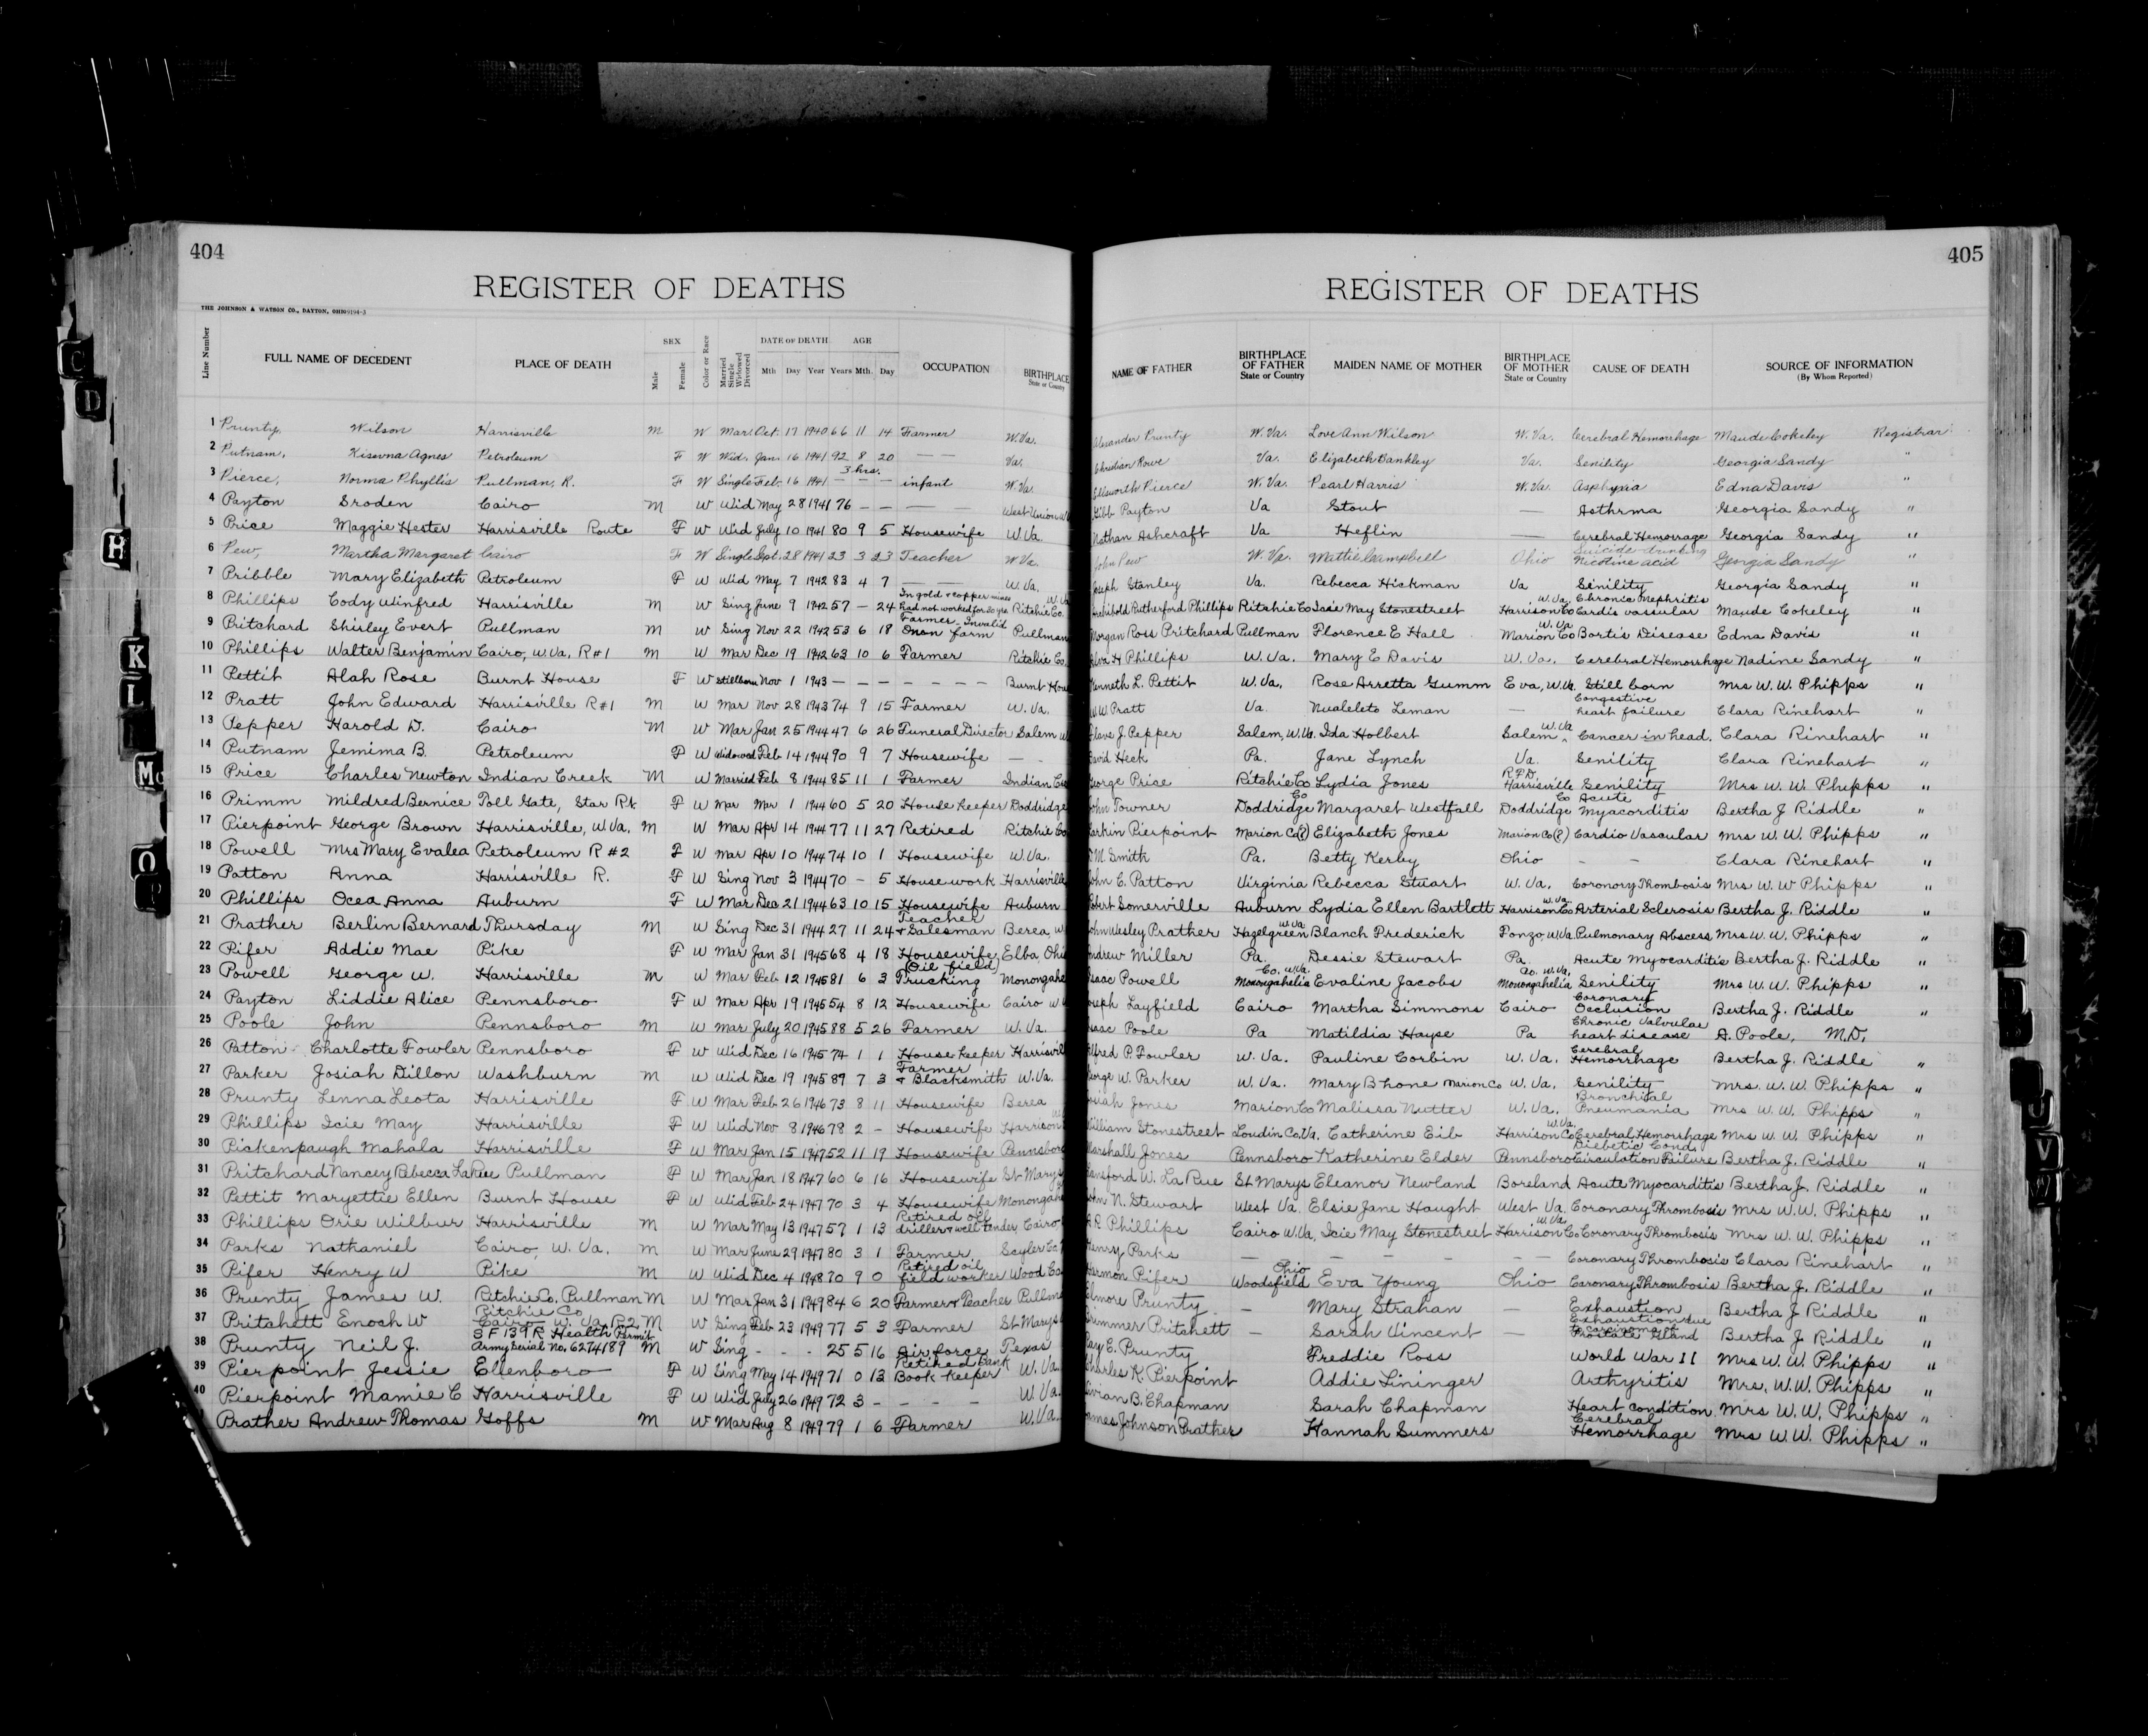 404
REGISTER OF DEATHS
THE JOHNSON & WATSON CO., DAYTON, OHIO
Line Number
FULL NAME OF DECEDENT
PLACE OF DEATH
SEX
Male
Female
Color or Race
Married Single Widowed Divorced
DATE OF DEATH
Mth Day Year
AGE
Years Mth. Day
OCCUPATION
BIRTHPLACE
State or Country
1 Prunty, Wilson Harrisville M W Mar. Oct. 17 1940 66 11 14 Farmer W.Va.
2 Putnam, Agnes Petroleum F W Wid. Jan. 16 1941 92 8 20 — — Va.
3 Pierce, Norma Phyllis Pullman, R. F W Single Feb. 16 1941 3 hrs. — — — infant W.Va.
4 Payton Sroden Cairo M W Wid May 28 1941 76 — — — — West Union
5 Price Maggie Hester Harrisville Route F W Wid July 10 1941 80 9 5 Housewife W.Va.
6 Pew, Martha Margaret Cairo F W Single Sept. 28 1941 23 3 23 Teacher W.Va.
7 Pribble Mary Elizabeth Petroleum F W Wid May 7 1942 83 4 7 — — W.Va.
8 Phillips Cody Winfred Harrisville M W Sing June 9 1942 57 — 24 In gold & copper mines Had not worked for 20 yrs Ritchie Co. W.Va
9 Pritchard Shirley Evert Pullman M W Sing Nov 22 1942 53 6 18 Farmer - Invalid On a farm Pullman
10 Phillips Walter Benjamin Cairo, W.Va. R#1 M W Mar Dec 19 1942 63 10 6 Farmer Ritchie Co.
11 Pettit Alah Rose Burnt House F W Stillborn Nov 1 1943 — — — — — — — Burnt Hou
12 Pratt John Edward Harrisville R#1 M W Mar Nov 28 1943 74 9 15 Farmer W.Va.
13 Pepper Harold D. Cairo M W Mar Jan 25 1944 47 6 26 Funeral Director Salem W
14 Putnam Jemima B. Petroleum F W Widowed Feb 14 1944 90 9 7 Housewife —
15 Price Charles Newton Indian Creek M W Married Feb. 8 1944 85 11 1 Farmer Indian Cre
16 Primm Mildred Bernice Toll Gate, Star Rt F W Mar Mar 1 1944 60 5 20 House Keeper Doddridge
17 Pierpoint George Brown Harrisville, W.Va. M W Mar Apr 14 1944 77 11 27 Retired Ritchie Co
18 Powell Mrs Mary Evalea Petroleum R #2 F W Mar Apr 10 1944 74 10 1 Housewife W.Va.
19 Patton Anna Harrisville R. F W Sing Nov 3 1944 70 — 5 Housework Harrisville
20 Phillips Ocea Anna Auburn F W Mar Dec 21 1944 63 10 15 Housewife Auburn
21 Prather Berlin Bernard Thursday M W Sing Dec 31 1944 27 11 24 Teacher & Salesman Berea, W
22 Pifer Addie Mae Pike F W Mar Jan 31 1945 68 4 18 Housewife Elba, Ohi
23 Powell George W. Harrisville M W Mar Feb 12 1945 81 6 3 Oil field Trucking Monongahe
24 Payton Liddie Alice Pennsboro F W Mar Apr 19 1945 54 8 12 Housewife Cairo W
25 Poole John Pennsboro M W Mar July 20 1945 88 5 26 Farmer W.Va.
26 Patton Charlotte Fowler Pennsboro F W Wid Dec 16 1945 74 1 1 House Keeper Harrisvil
27 Parker Josiah Dillon Washburn M W Wid Dec 19 1945 89 7 3 Farmer & Blacksmith W.Va.
28 Prunty Lenna Leota Harrisville F W Mar Feb 26 1946 73 8 11 Housewife Berea
29 Phillips Icie May Harrisville F W Wid Nov 8 1946 78 2 - Housewife Harrison
30 Pickenpaugh Mahala Harrisville F W Mar Jan 15 1947 52 11 19 Housewife Pennsboro
31 Pritchard Nancey Rebecca LaRue Pullman F W Mar Jan 18 1947 60 6 16 Housewife St Marys
32 Pettit Maryettie Ellen Burnt House F W Wid Feb 24 1947 70 3 4 Housewife Monongahe
33 Phillips Orie Wilbur Harrisville M W Mar May 13 1947 57 1 13 Retired oil driller & well tender Cairo
34 Parks Nathaniel Cairo, W. Va. M W Mar June 29 1947 80 3 1 Farmer Scyler Co.
35 Pifer Henry W Pike M W Wid Dec 4 1948 70 9 0 Retired oil field worker Wood Co
36 Prunty James W. Ritchie Co. Pullman M W Mar Jan 31 1949 84 6 20 Farmer & Teacher Pullm
37 Pritchett Enoch W Ritchie Co Cairo W. Va. R2 M W Sing Feb 23 1949 77 5 3 Farmer St Marys
38 Prunty Neil J. SF 139 R Health Permit Army Serial No. 6274189 M W Sing - - - 25 5 16 Air forge Texas
39 Pierpoint Jessie Ellenboro F W Sing May 14 1949 71 0 13 Retired Bank Book keeper W. Va.
40 Pierpoint Mamie C Harrisville F W Wid July 26 1949 72 3 - - - - W. Va.
Prather Andrew Thomas Goffs M W Mar Aug 8 1949 79 1 6 Farmer W.Va.
405
REGISTER OF DEATHS
NAME OF FATHER
BIRTHPLACE OF FATHER
State or Country
MAIDEN NAME OF MOTHER
BIRTHPLACE OF MOTHER
State or Country
CAUSE OF DEATH
SOURCE OF INFORMATION
(By Whom Reported)
Alexander Prunty W.Va. Love Ann Wilson W.Va. Cerebral Hemorrhage Maude Cokeley Registrar
Christian Rowe Va. Elizabeth Bankley Va. Senility Georgia Sandy "
Ellsworth Pierce W.Va. Pearl Harris W.Va. Asphyxia Edna Davis "
Gibb Payton Va Stout — Asthma Georgia Sandy "
Nathan Ashcraft Va Heflin — Cerebral Hemorrage Georgia Sandy "
John Pew W.Va. Mattie Campbell Ohio Suicide drinking Nicotine acid Georgia Sandy "
Joseph Stanley Va. Rebecca Hickman Va Senility Georgia Sandy "
Archibold Rutherford Phillips Ritchie Co Icie May Stonestreet Harrison Co W.Va. Chronic Nephritis Cardis vascular Maude Cokeley "
Morgan Ross Pritchard Pullman Florence E Hall Marion Co W.Va Bortis Disease Edna Davis "
Elva H Phillips W.Va. Mary E Davis W.Va. Cerebral Hemorrhage Nadine Sandy "
Kenneth L. Pettit W.Va. Rose Arretta Gumm Eva, W.Va. Still born Mrs W. W. Phipps "
W.W. Pratt Va. Nualeleto Leman — Congestive heart failure Clara Rinehart "
J. Pepper Salem, W.Va. Ida Holbert Salem W.Va Cancer in head. Clara Rinehart "
David Heck Pa. Jane Lynch Va. Senility Clara Rinehart "
George Price Ritchie Co Lydia Jones R.F.D. Harrisville Senility Mrs W. W. Phipps "
John Towner Doddridge Co Margaret Westfall Doddridge Co Acute Myacorditis Bertha J Riddle "
Larkin Pierpoint Marion Co(?) Elizabeth Jones Marion Co(?) Cardio Vascular Mrs W. W. Phipps "
Smith Pa. Betty Kerby Ohio - - Clara Rinehart "
John E. Patton Virginia Rebecca Stuart W. Va. Coronory Thombosis Mrs W. W Phipps "
Robert Somerville Auburn Lydia Ellen Bartlett Harrison Co W.Va. Arterial Sclerosis Bertha J. Riddle "
John Wesley Prather Hazelgreen W.Va Blanch Frederick Ponzo, W.Va. Pulmonary Abscess Mrs W. W. Phipps "
Andrew Miller Pa. Dessie Stewart Pa. Acute Myocarditis Bertha J. Riddle "
Isaac Powell Monongahelia Co. W.Va. Evaline Jacobs Monongahelia Co. W.Va. Senility Mrs W. W. Phipps "
Joseph Layfield Cairo Martha Simmons Cairo Coronary Occlusion Bertha J. Riddle "
Isaac Poole Pa Matildia Hayse Pa Chronic Valvular heart disease A. Poole, M.D.
Alfred P. Fowler W. Va. Pauline Corbin W. Va. Cerebral Hemorrhage Bertha J. Riddle "
George W. Parker W. Va. Mary B hone Marion Co W. Va. Senility Mrs. W. W. Phipps "
Josiah Jones Marion Co Malissa Nutter W. Va. Bronchial Pneumania Mrs W. W. Phipps "
William Stonestreet Loudin Co, Va. Catherine Eib Harrison Co W.Va. Cerebral Hemorrhage Mrs W. W. Phipps "
Marshall Jones Pennsboro Katherine Elder Pennsboro Diebetic Circulation Failure Bertha J. Riddle "
Lansford W. La Rue St Marys Eleanor Newland Boreland Acute Myocarditis Bertha J. Riddle "
N. Stewart West Va. Elsie Jane Haught West Va. Coronary Thrombosis Mrs W. W. Phipps "
Phillips Cairo W.Va. Icie May Stonestreet Harrison Co W.Va. Coronary Thrombosis Mrs W. W. Phipps "
Henry Parks — — — — — Coronary Thrombosis Clara Rinehart "
Harmon Pifer Woodsfield Ohio Eva Young Ohio Coronary Thrombosis Bertha J. Riddle "
Elmore Prunty — Mary Strahan — Exhaustion Bertha J Riddle "
Brimmer Pritchett — Sarah Vincent — Exhaustion due to carcinoma of Prostate Gland Bertha J Riddle "
Ray E. Prunty Freddie Ross World War II Mrs W. W. Phipps "
Charles K. Pierpoint Addie Lininger Arthyritis Mrs, W. W. Phipps "
Vivian B. Chapman Sarah Chapman Heart condition Mrs W. W. Phipps "
James Johnson Prather Hannah Summers Cerebral Hemorrhage Mrs W. W. Phipps "
C
D
H
K
L
M
O
P
U
V